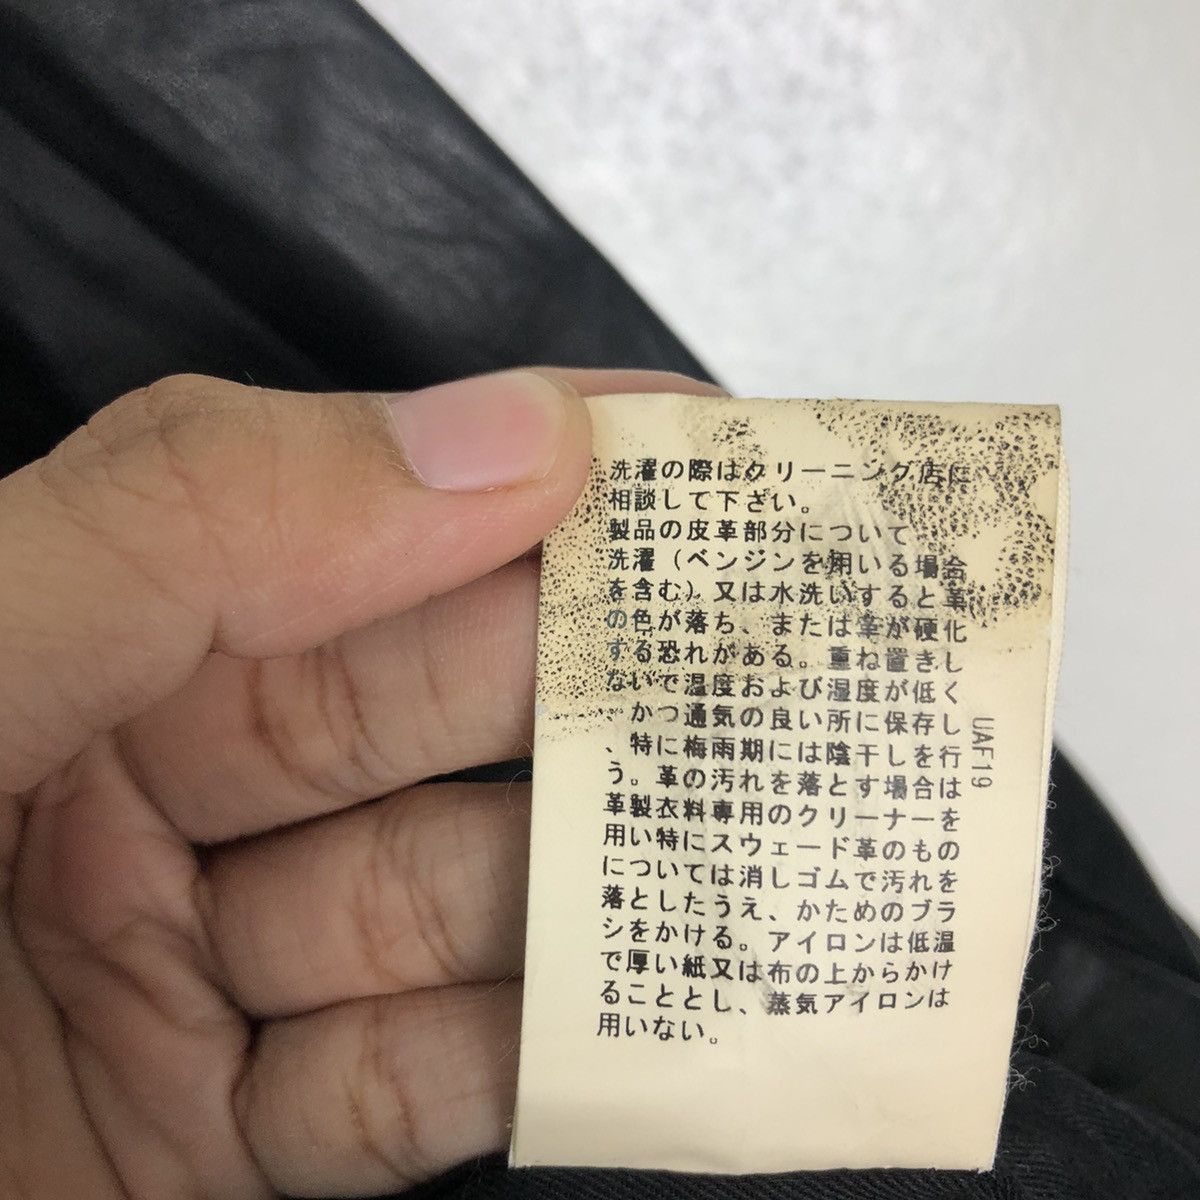 洗濯の際はクリーニング店に
相談して下さい。
製品の皮革部分について
洗濯(ベンジンを用いる場合
を含む)又は水洗いすると革
の色が落ち、または革が硬化
する恐れがある。重ね置きし
ないで温度および湿度が低く
、かつ通気の良い所に保存し
、特に梅雨期には陰干しを行
う。革の汚れを落とす場合は
革製衣料専用のクリーナーを
用い特にスウェード革のもの
については消しゴムで汚れを
落としたうえ、かためのブラ
シをかける。アイロンは低温
で厚い紙又は布の上からかけ
ることとし、蒸気アイロンは
用いない。
UAF19